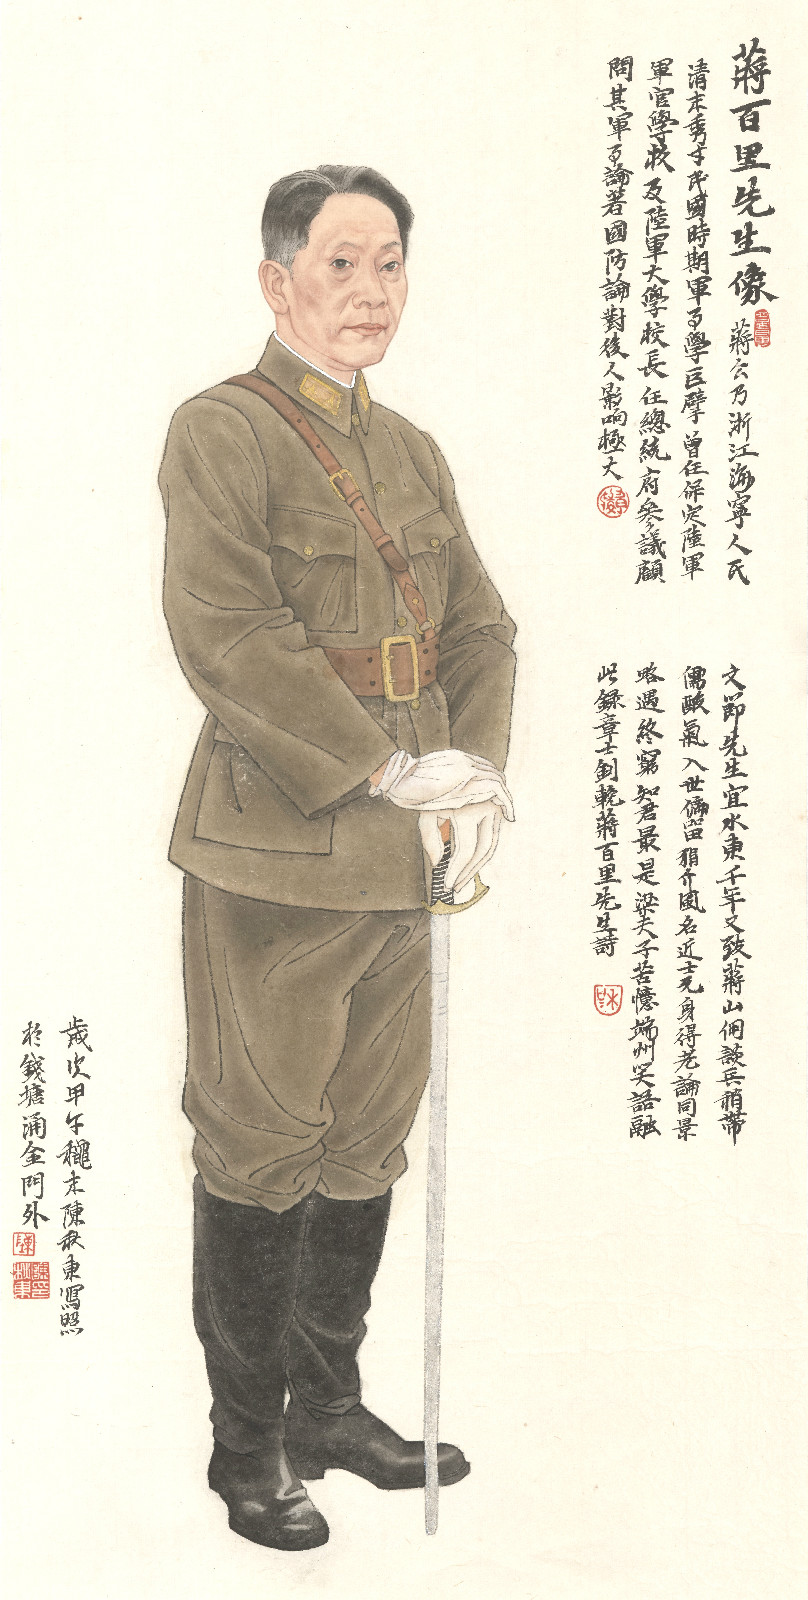 蔣百里先生像 蔣公乃浙江海寧人氏
清末秀才民國時期軍事學巨擘曾任保定陸軍
軍官學校及陸軍大學校長任總統府參議顧
問其軍事論著國防論對後人影响極大
文節先生宜水東千年又致蔣山佣談兵稍帶
儒酸氣入世偏留狷介風名近士元身得老論同景
略遇終窮知君最是梁夫子苦憶端州笑語融
此錄章士釗輓蔣百里先生詩
歲次甲午龝末陳永東寫照
於錢塘涌金門外